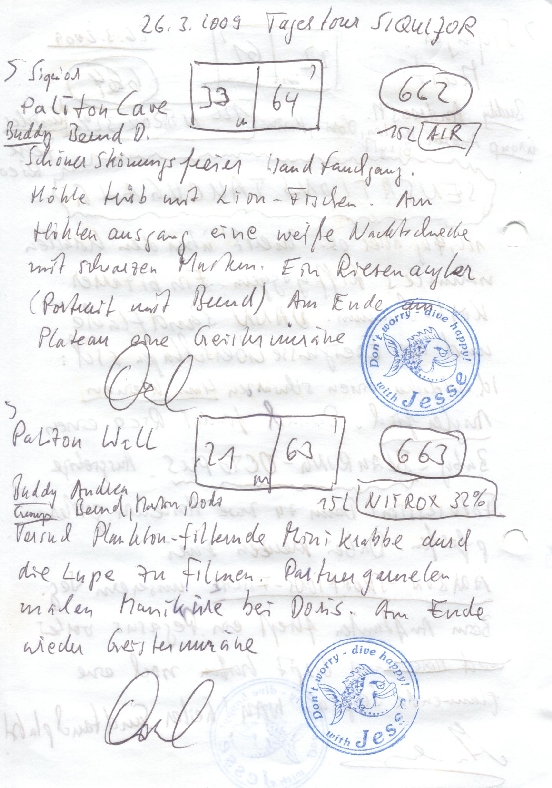 26.3.2009 Tagestour SIQUIJOR
Siquior
Paliton Cave
33 m 64'
662
Buddy Bernd D.
15L AIR
Schöner Strömungsfreier Wandtauchgang.
Höhle trüb mit Lion-Fischen. Am
Höhlenausgang eine weiße Nacktschnecke
mit schwarzen Punkten. Ein Riesenangler
(Portrait mit Bernd) Am Ende am
Plateau eine Geistermuräne
Don't worry - dive happy!
with Jesse
Paliton Wall
21 m 63'
663
Buddy Andrea
Group Bernd, Doris
15L NITROX 32%
Versuch Plankton-filternde Minikrabbe durch
die Lupe zu filmen. Partnergarnelen
Maniküre bei Doris. Am Ende
wieder Geistermuräne
Don't worry - dive happy!
with Jesse